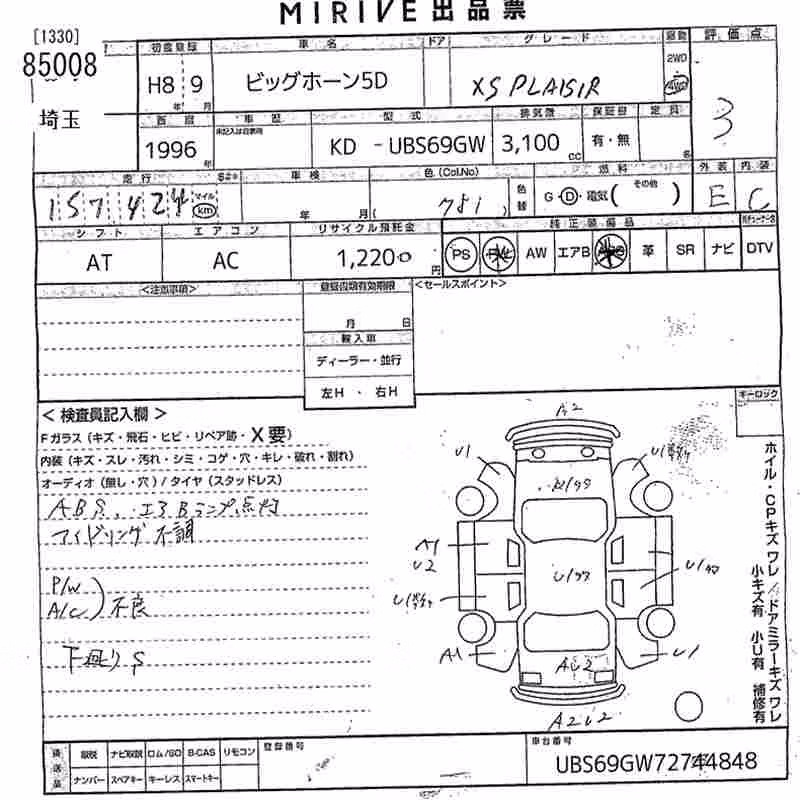 MIRIVE 出品票
[1330]
85008
埼玉
初度登録 車名 ドア グレード 駆動 評価点
H8 9 ビッグホーン5D XS PLAISIR 2WD 4WD 3
年 月
西暦 車歴 型式 排気量 保証書 定員
1996 年 未記入は自家用 KD - UBS69GW 3,100 cc 有・無 名
走行 車検 色(Col.No) 燃料 外装 内装
157,42 マイル km 年 月 ( 781 ) 色替 G・D・電気( その他 ) E C
シフト エアコン リサイクル預託金 純正装備品
AT AC 1,220 円 PS AW エアB 革 SR ナビ DTV
<注意事項> 登録書類有効期限 <セールスポイント>
月 日
輸入車
ディーラー・並行
左H ・ 右H
キーロック
< 検査員記入欄 >
Fガラス (キズ・飛石・ヒビ・リペア跡・X要)
内装 (キズ・スレ・汚れ・シミ・コゲ・穴・キレ・破れ・割れ)
オーディオ (無し・穴) / タイヤ (スタッドレス)
ABS、エアBランプ点灯
アイドリング不調
P/W
A/C ) 不良
下廻りS
A2
U1
A1
U2
A1
U1
A2U2
ホイル・CPキズワレ / ドアミラーキズワレ
小キズ有 小U有 補修有
後送品 取説 ナビ取説 ロム/SD B-CAS リモコン 登録番号 車台番号
ナンバー スペアキー キーレス スマートキー UBS69GW72744848